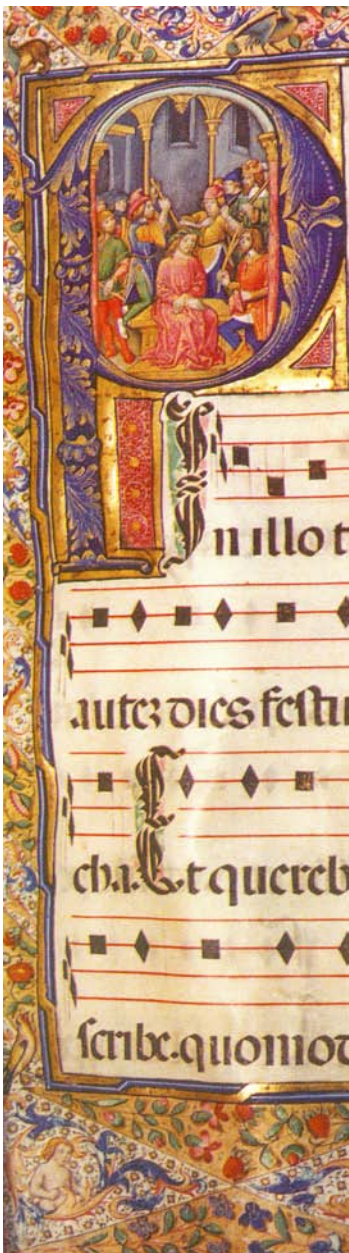 P
In illo t
auteʒ dies festu
cha. Et quereb
scribe. quomod